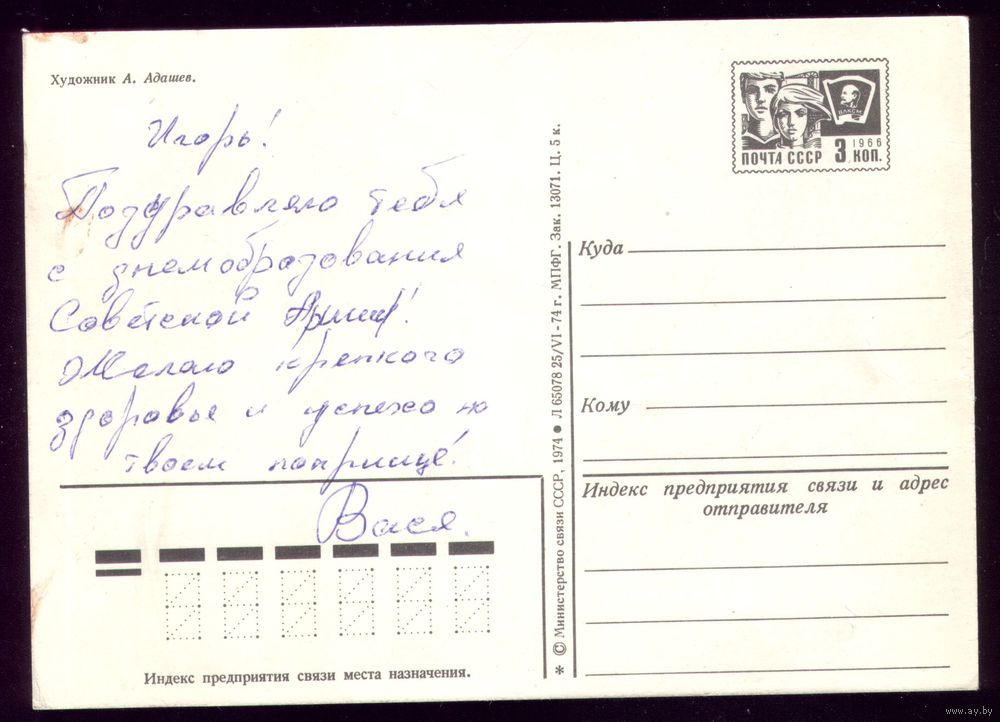 Художник А. Адашев.
Игорь!
Поздравляю тебя
с днем образования
Советской Армии!
Желаю крепкого
здоровья и успехов на
твоем поприще!
Вася.
Индекс предприятия связи места назначения.
* © Министерство связи СССР, 1974 ● Л 65078 25/VI-74 г. МПФГ. Зак. 13071. Ц. 5 к.
ВЛКСМ
1966
ПОЧТА СССР 3 КОП.
Куда
Кому
Индекс предприятия связи и адрес
отправителя
www.ay.by